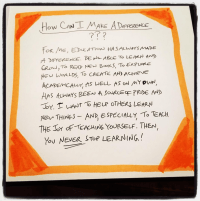 How Can I Make A Difference
???
For me, education has always made
a difference. Being able to learn and
grow, to read new books, to explore
new worlds, to create and achieve
academically, as well as on my own,
has always been a source of pride and
joy. I want to help others learn
new things - and, especially, to teach
the joy of teaching yourself. Then,
you never stop learning!